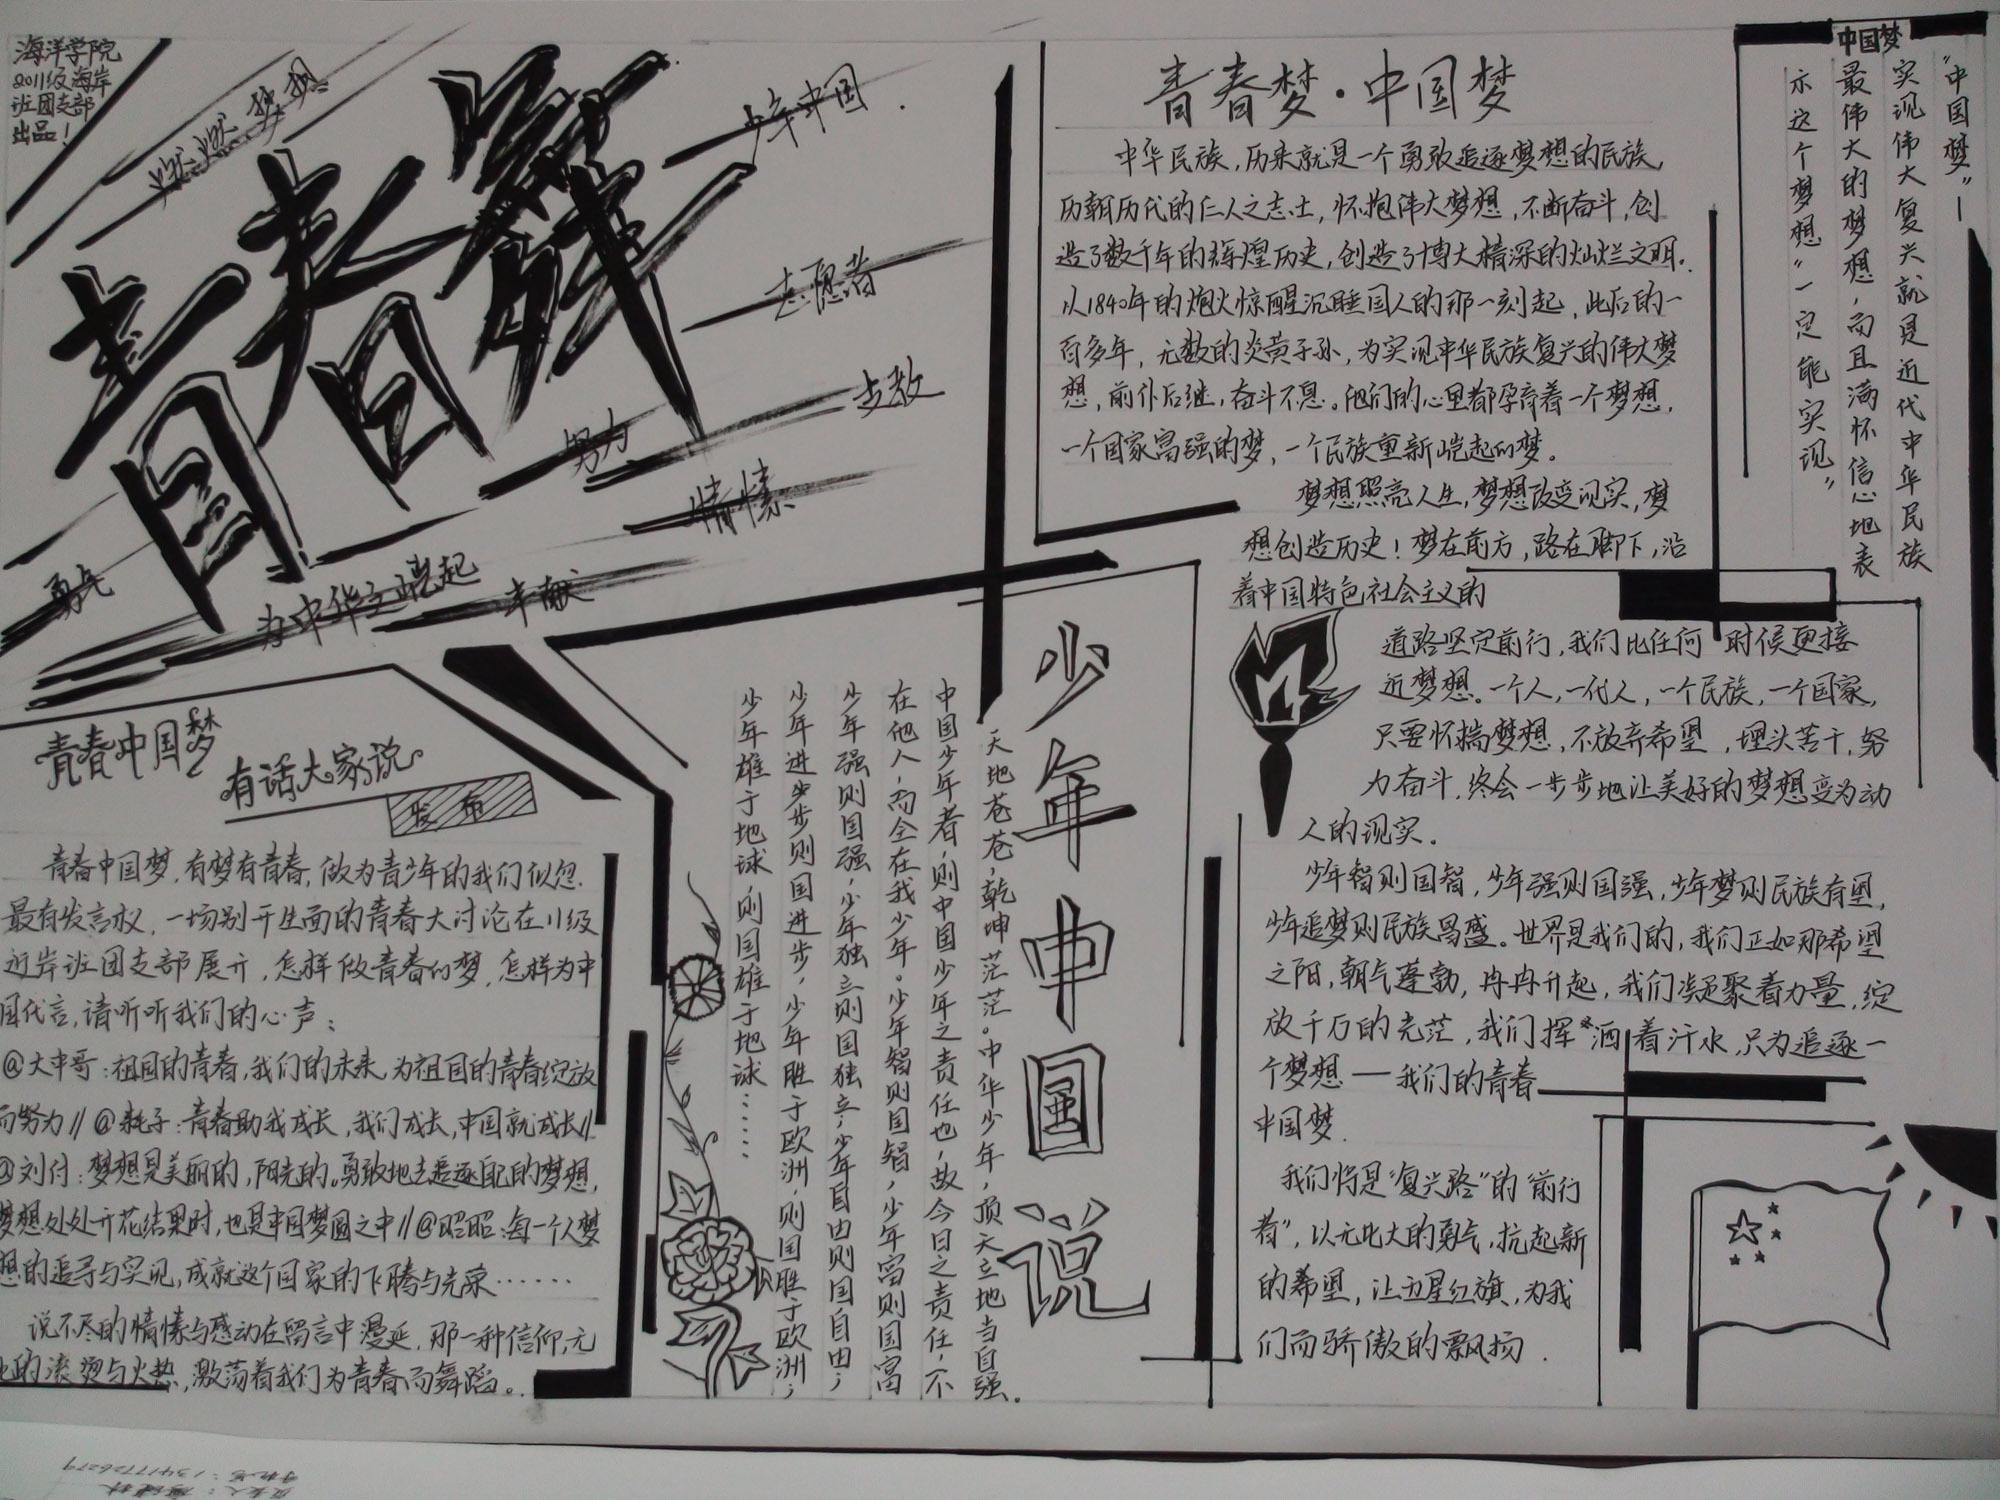 海洋学院
2011级海岸
班团支部
出品！
燃燃梦想
青春舞
少年中国
志愿者
步散
努力
情愫
勇气
为中华之崛起
丰献
青春中国梦
有话大家说
发布
青春中国梦，有梦有青春，做为青少年的我们似忽
最有发言权，一场别开生面的青春大讨论在11级
近岸班团支部展开，怎样做青春的梦，怎样为中
国代言，请听听我们的心声：
@大中哥：祖国的青春，我们的未来，为祖国的青春绽放
而努力//@耗子：青春助我成长，我们成长，中国就成长//
@刘付：梦想是美丽的，阳光的。勇敢地去追逐自己的梦想，
梦想处处开花结果时，也是中国梦圆之中//@昭昭：每一个人梦
想的追寻与实现，成就这个国家的飞腾与光荣……
说不尽的情愫与感动在留言中漫延，那一种信仰，无
比的滚烫与火热，激荡着我们为青春而舞蹈。
少年中国说
天地苍苍，乾坤茫茫。中华少年，顶天立地当自强。
中国少年者，则中国少年之责任也，故今日之责任，不
在他人，而全在我少年。少年智则国智，少年富则国富
少年强则国强，少年独立则国独立，少年自由则国自由；
少年进步步则国进步，少年胜于欧洲，则国胜于欧洲；
少年雄于地球，则国雄于地球……
青春梦·中国梦
中华民族，历来就是一个勇敢追逐梦想的民族
历朝历代的仁人之志士，怀抱伟大梦想，不断奋斗，创
造了数千年的辉煌历史，创造了博大精深的灿烂文明。
从1840年的炮火惊醒沉睡国人的那一刻起，此后的一
百多年，无数的炎黄子孙，为实现中华民族复兴的伟大梦
想，前仆后继，奋斗不息。他们的心里都孕育着一个梦想，
一个国家富强的梦，一个民族重新崛起的梦。
梦想照亮人生，梦想改变现实，梦
想创造历史！梦在前方，路在脚下，沿
着中国特色社会主义的
道路坚定前行，我们比任何时候更接
近梦想。一个人，一代人，一个民族，一个国家，
只要怀揣梦想，不放弃希望，埋头苦干，努
力奋斗，终会一步步地让美好的梦想变为动
人的现实。
少年智则国智，少年强则国强，少年梦则民族有望，
少年追梦则民族昌盛。世界是我们的，我们正如那希望
之阳，朝气蓬勃，冉冉升起，我们凝聚着力量，绽
放千万的光茫，我们挥洒着汗水，只为追逐一
个梦想——我们的青春
中国梦。
我们将是“复兴路”的“前行
者”，以无比大的勇气，抗起新
的希望，让五星红旗，为我
们而骄傲的飘扬．
中国梦
“中国梦”—
实现伟大复兴就是近代中华民族
最伟大的梦想，而且满怀信心地表
示这个梦想“一定能实现”
手机号：13417726279